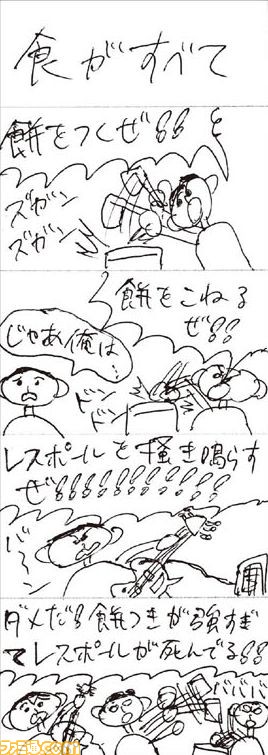 食がすべて
餅をつくぜ!!
ズガン
ズガン
餅をこねる
ぜ!!
じゃあ俺は…
ドン
ドン
レスポールを掻き鳴らす
ぜ!!!!!!!!!!
バーン
ダメだ!!餅つきが強すぎ
てレスポールが死んでる!!
バババババ
ファミ通.com